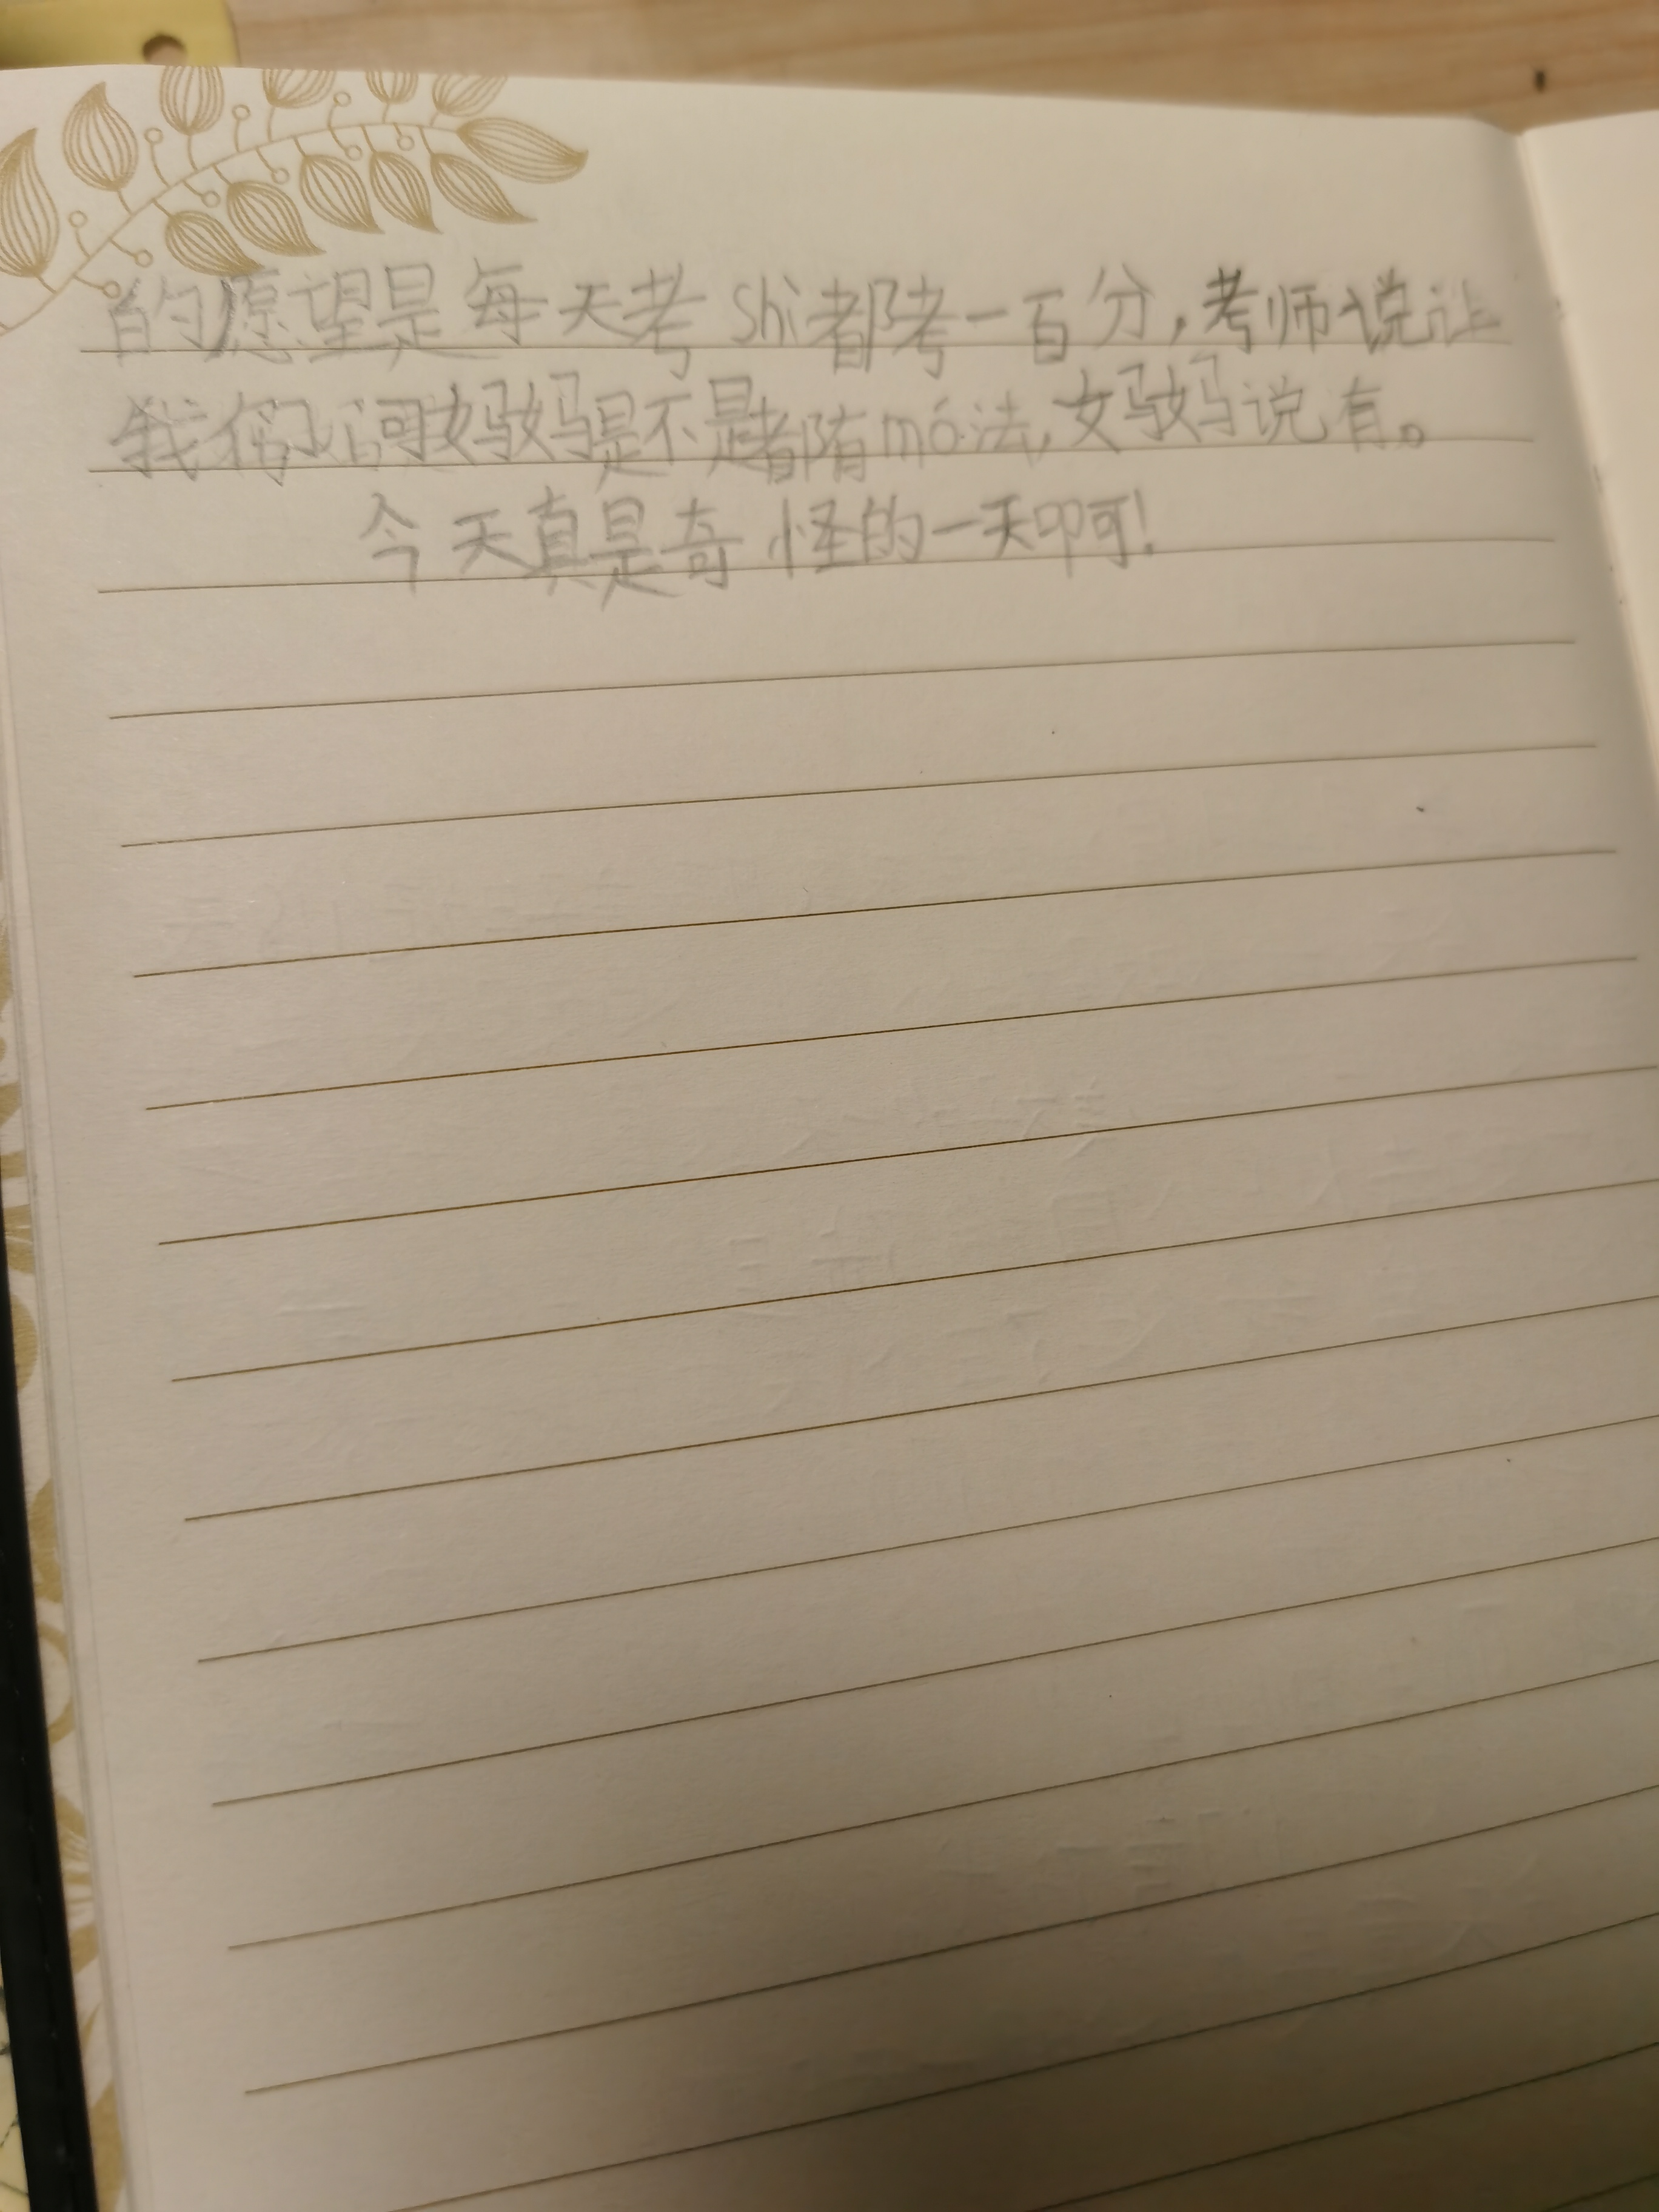 的愿望是每天考shi都考一百分,考师说让
我 妈妈是不是都有mó法,妈妈说有。
今天真是奇怪的一天啊!